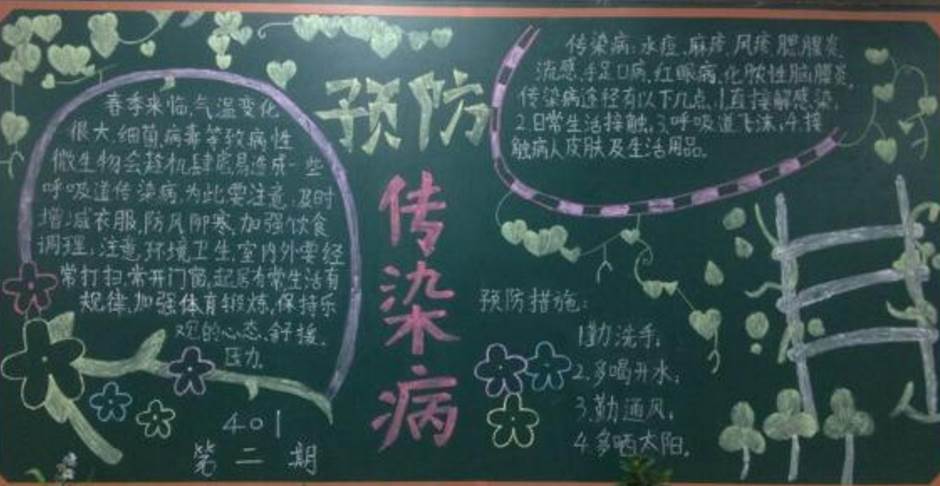 预防
传染病
春季来临,气温变化
很大,细菌、病毒等致病性
微生物会趁机肆虐,易造成一些
呼吸道传染病,为此要注意,及时
增减衣服,防风御寒,加强饮食
调理,注意环境卫生,室内外要经
常打扫,常开门窗,起居有常生活有
规律,加强体育锻炼,保持乐
观的心态,舒援
压力。
401
第二期
传染病:水痘、麻疹、风疹、腮腺炎
流感、手足口病、红眼病、化脓性脑膜炎
传染病途径有以下几点,1.直接解感染,
2.日常生活接触,3.呼吸道飞沫,4.接
触病人皮肤及生活用品。
预防措施:
1.勤洗手;
2.多喝开水;
3.勤通风;
4.多晒太阳。